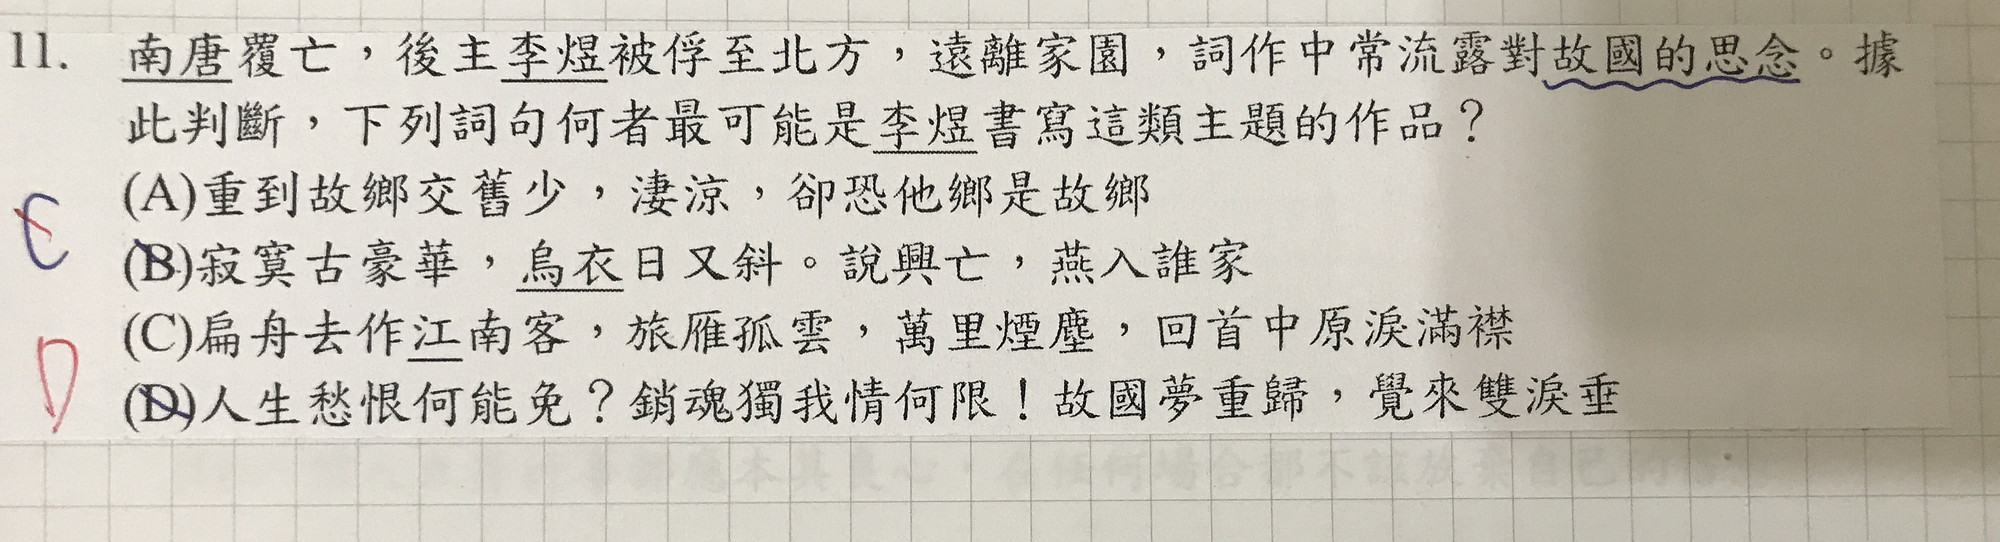 11. 南唐覆亡，後主李煜被俘至北方，遠離家園，詞作中常流露對故國的思念。據
此判斷，下列詞句何者最可能是李煜書寫這類主題的作品？
(A)重到故鄉交舊少，淒涼，卻恐他鄉是故鄉
C
(B)寂寞古豪華，烏衣日又斜。說興亡，燕入誰家
(C)扁舟去作江南客，旅雁孤雲，萬里煙塵，回首中原淚滿襟
D
(D)人生愁恨何能免？銷魂獨我情何限！故國夢重歸，覺來雙淚垂